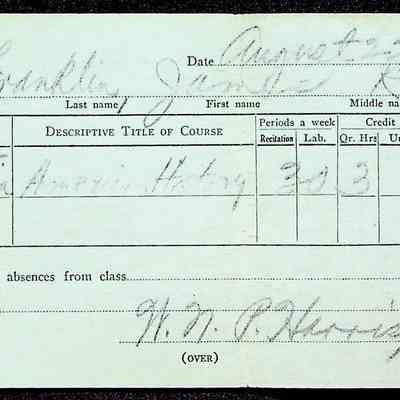 Date August 22
Franklin, James R
Last name First name Middle na
Descriptive Title of Course Periods a week Credit
Recitation Lab. Qr. Hrs Un
a American History 3 0 3
absences from class
W. N. P. Harris
(OVER)